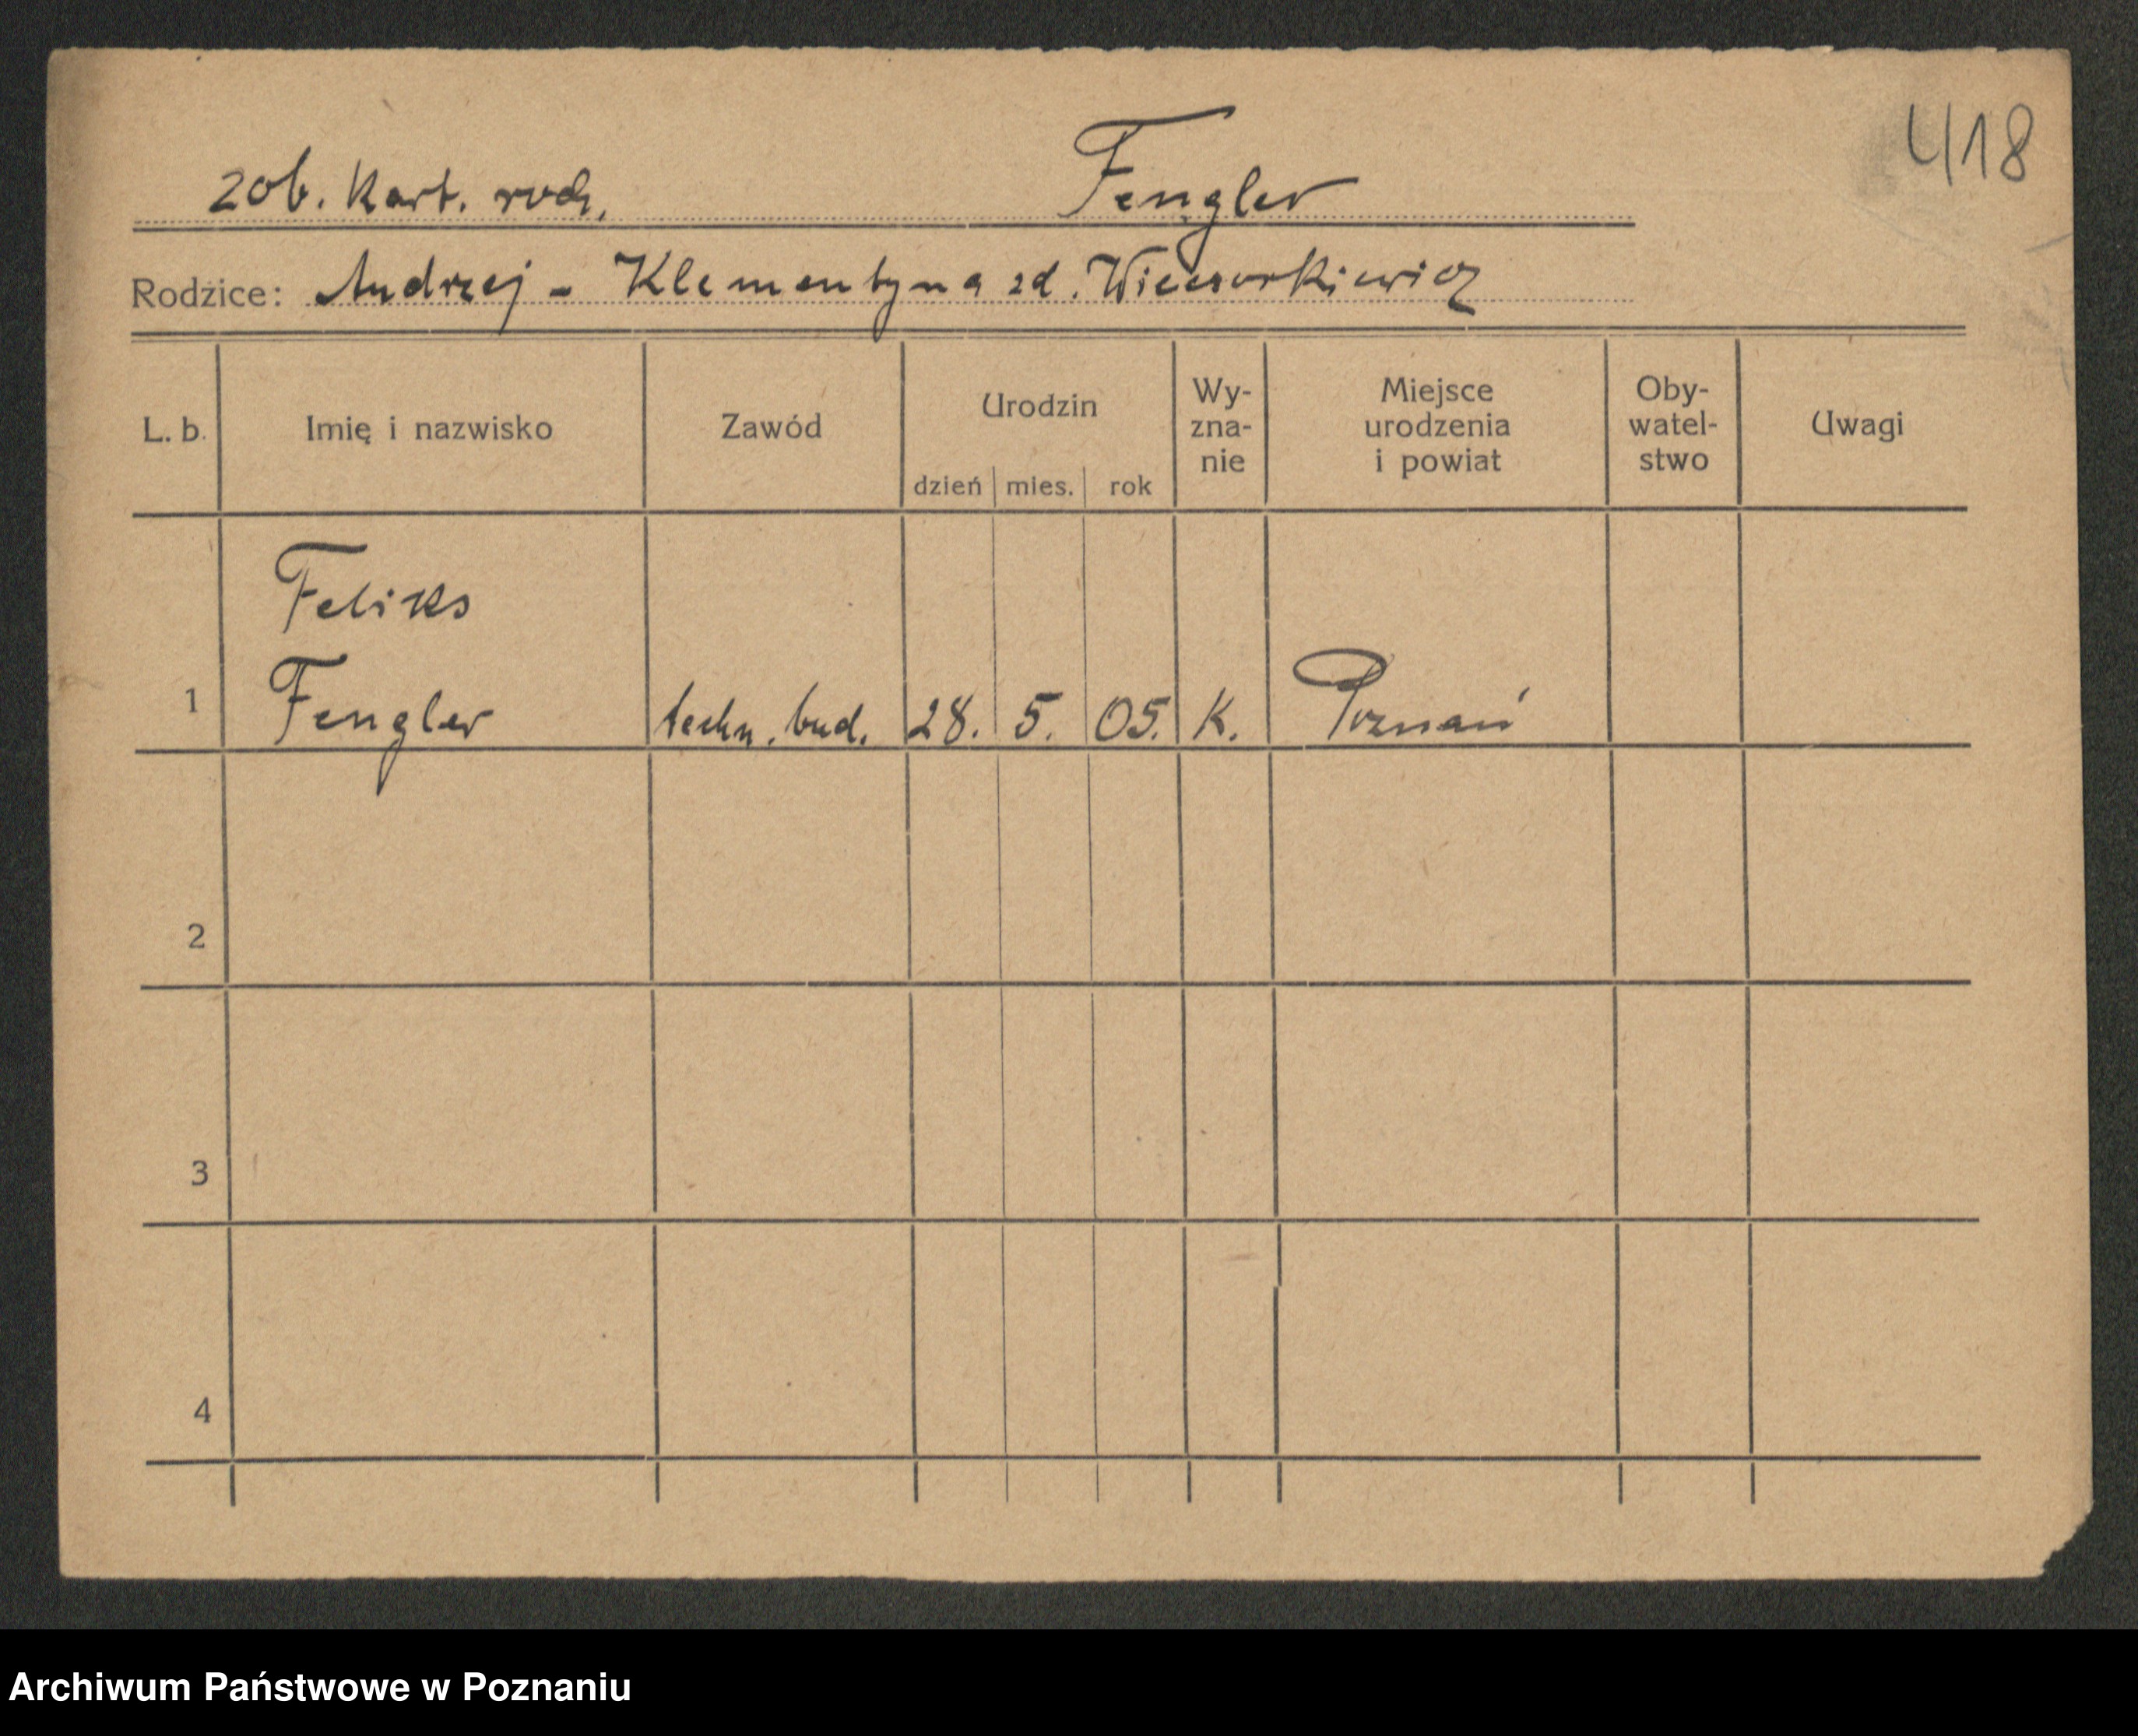 418
zob. Kart. rodz. Fengler
Rodzice: Andrzej - Klementyna zd. Wieczorkiewicz
L. b.
Imię i nazwisko
Zawód
Urodzin
dzień mies. rok
Wy-
zna-
nie
Miejsce
urodzenia
i powiat
Oby-
watel-
stwo
Uwagi
Feliks
1 Fengler techn. bud. 28. 5. 05. K. Poznań
2
3
4
Archiwum Państwowe w Poznaniu